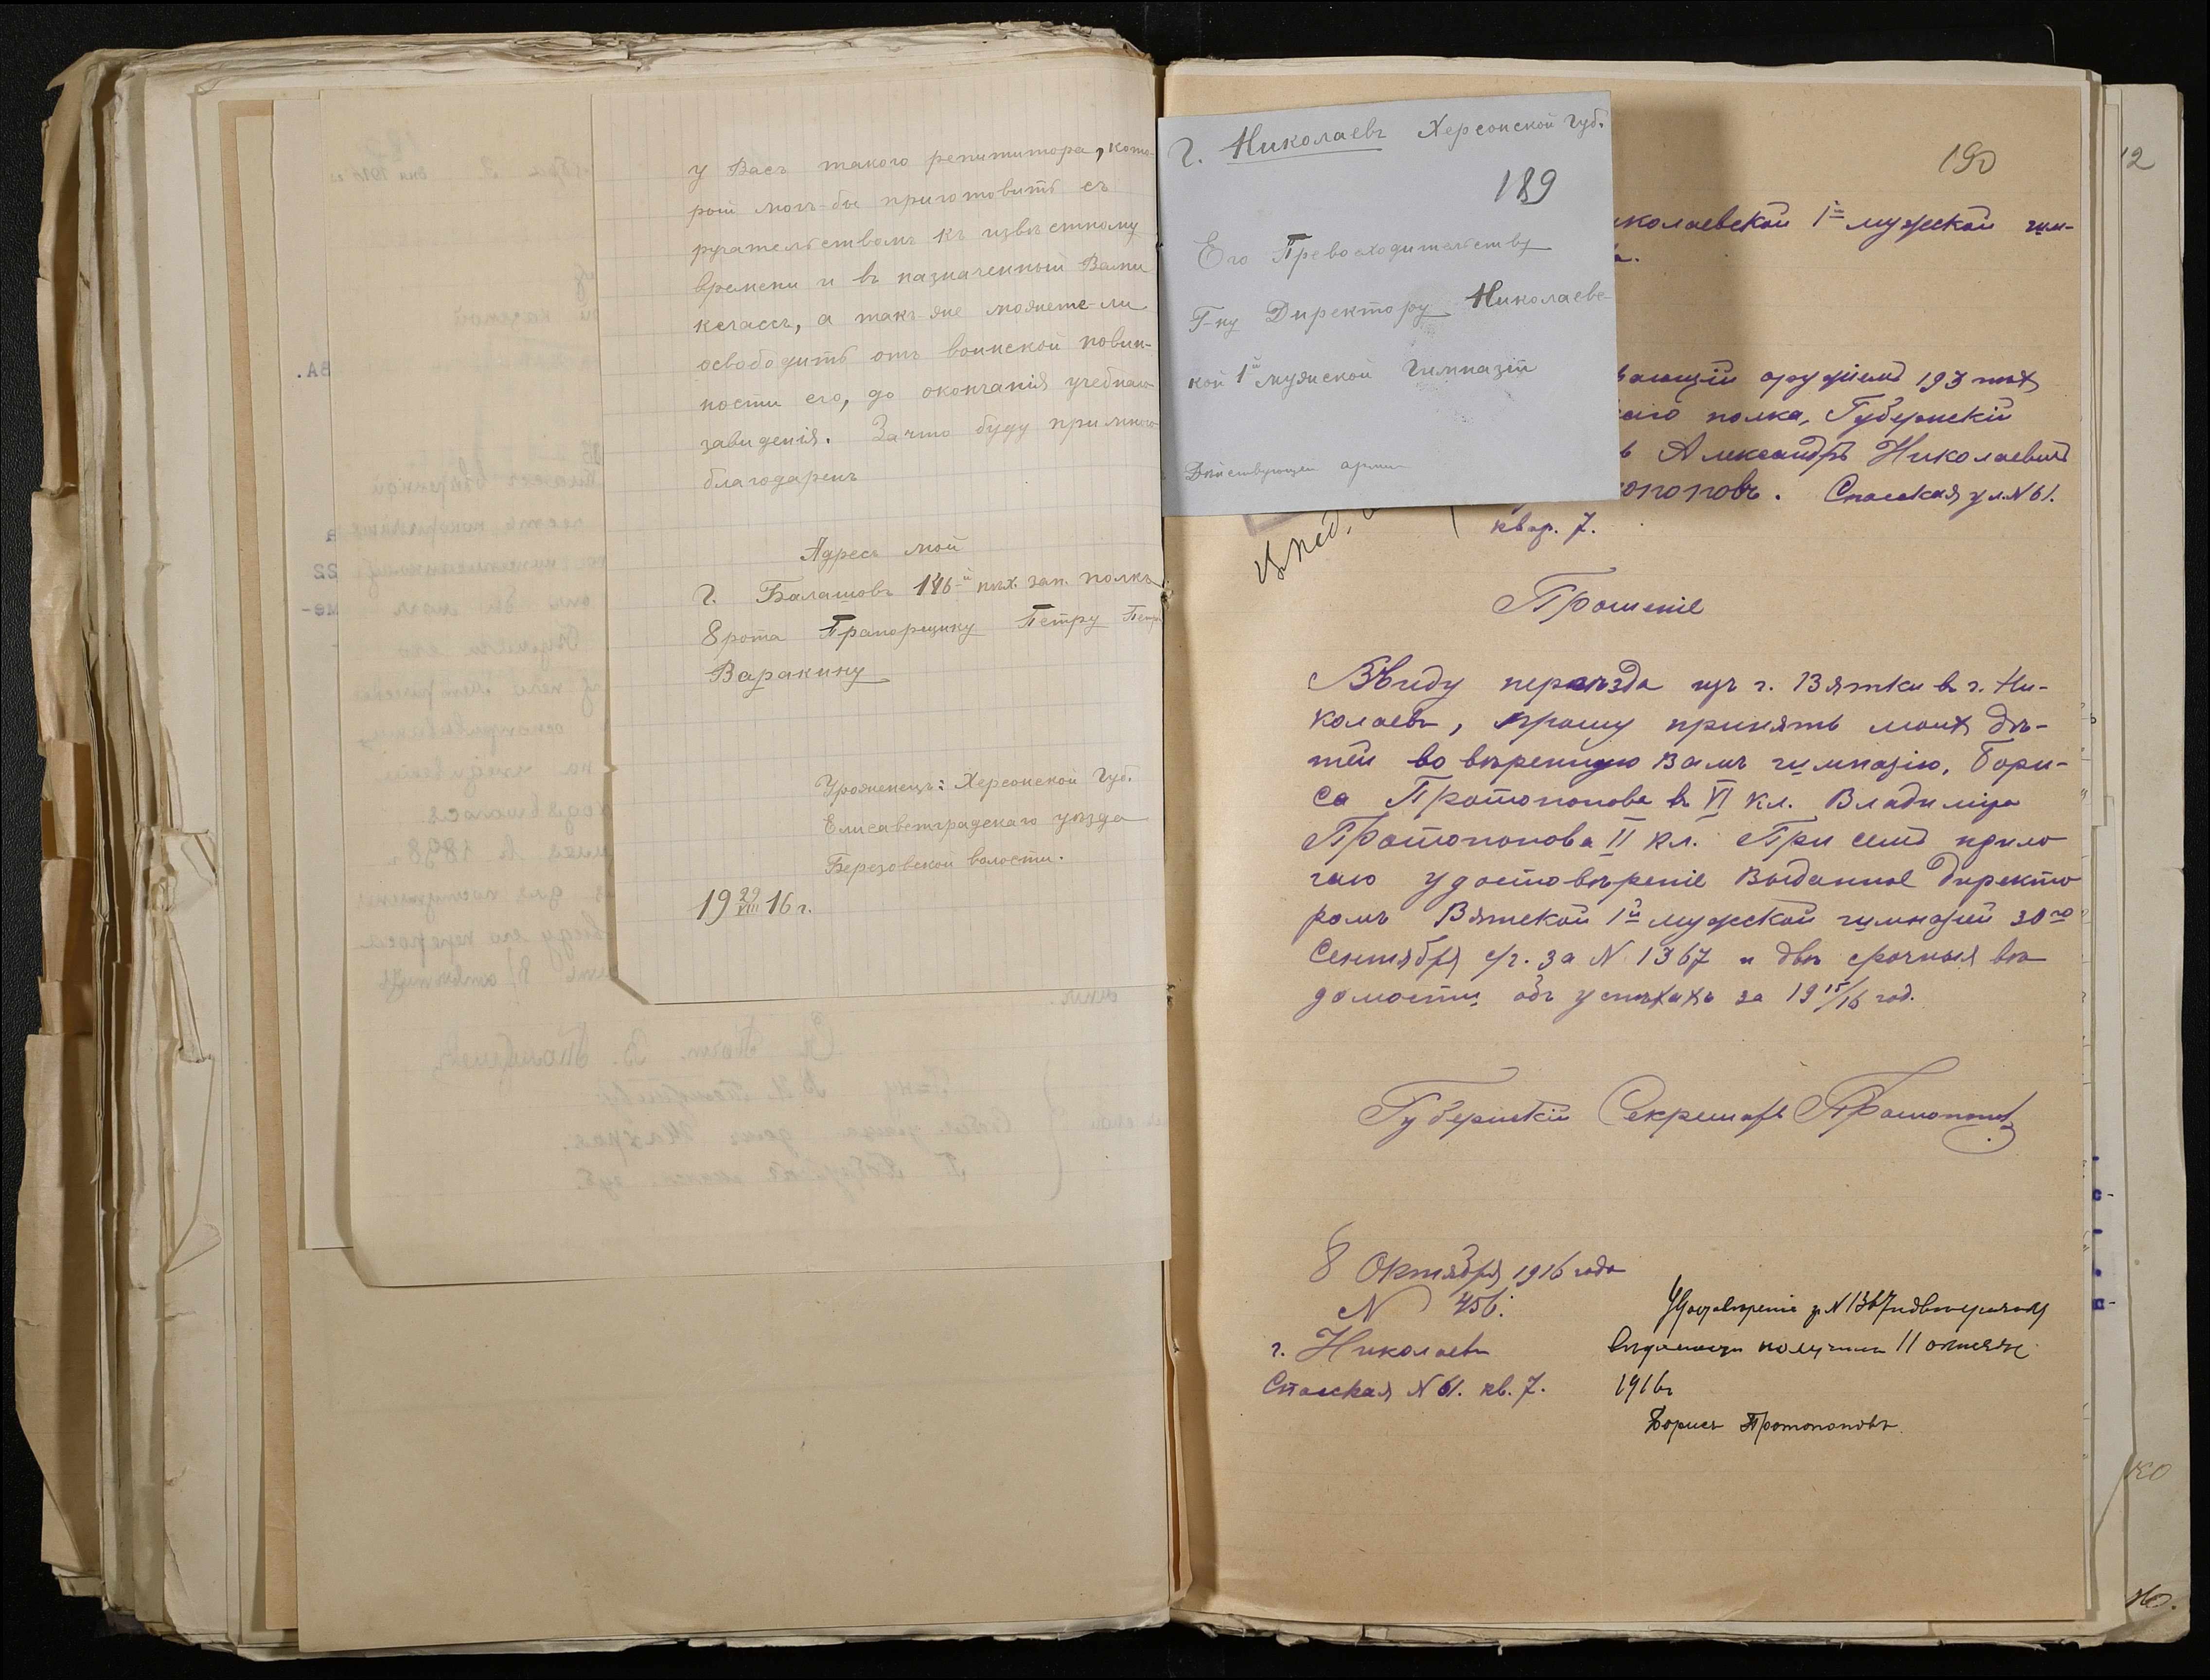 у Васъ такого репититора, кото-
рый могъ-бы приготовить съ
ручательствомъ къ извѣстному
времени и въ назначенный Вами
классъ, а такъ-же можете-ли
освободить отъ воинской повин-
ности его, до окончанія учебнаго
заведенія. Зачто буду примного
благодаренъ
Адресъ мой
г. Балашовъ 146-й пѣх. зап. полкъ
8 рота Прапорщику Петру Петр
Варакину
Уроженецъ: Херсонской Губ.
Елисаветградскаго уѣзда
Березовской волости.
19 29/VIII 16 г.
г. Николаевъ Херсонской Губ.
189
Его Превосходительству
Г-ну Директору Николаевс-
кой 1й мужской Гимназіи
Дѣйствующей арми
190
иколаевской 1й мужской гим-
вающій оружіемъ 193 пѣх
аго полка, Губернскій
ъ Александръ Николаевичъ
опоповъ. Спасская ул. N 61.
квар. 7.
Прошеніе
Ввиду переѣзда изъ г. Вятки въ г. Ни-
колаевъ, прошу принять моихъ дѣ-
тей во ввѣренную Вамъ гимназію, Бори-
са Протопопова въ VI кл. Владиміра
Протопопова II кл. При семъ прило
гаю удостовѣреніе выданное директо
ромъ Вятской 1й мужской гимназіей 30го
Сентября с/г. за N 1367 и двѣ срочныя вѣ
домости объ успѣхахъ за 19 15/16 год.
Губернскій Секретарь Протопоповъ
8 Октября 1916 года
N 456.
г. Николаевъ
Спасская N 61. кв. 7.
Удостовѣреніе за N 1367 и двѣ срочныя
вѣдомости получилъ 11 октября
1916г
Борисъ Протопоповъ.